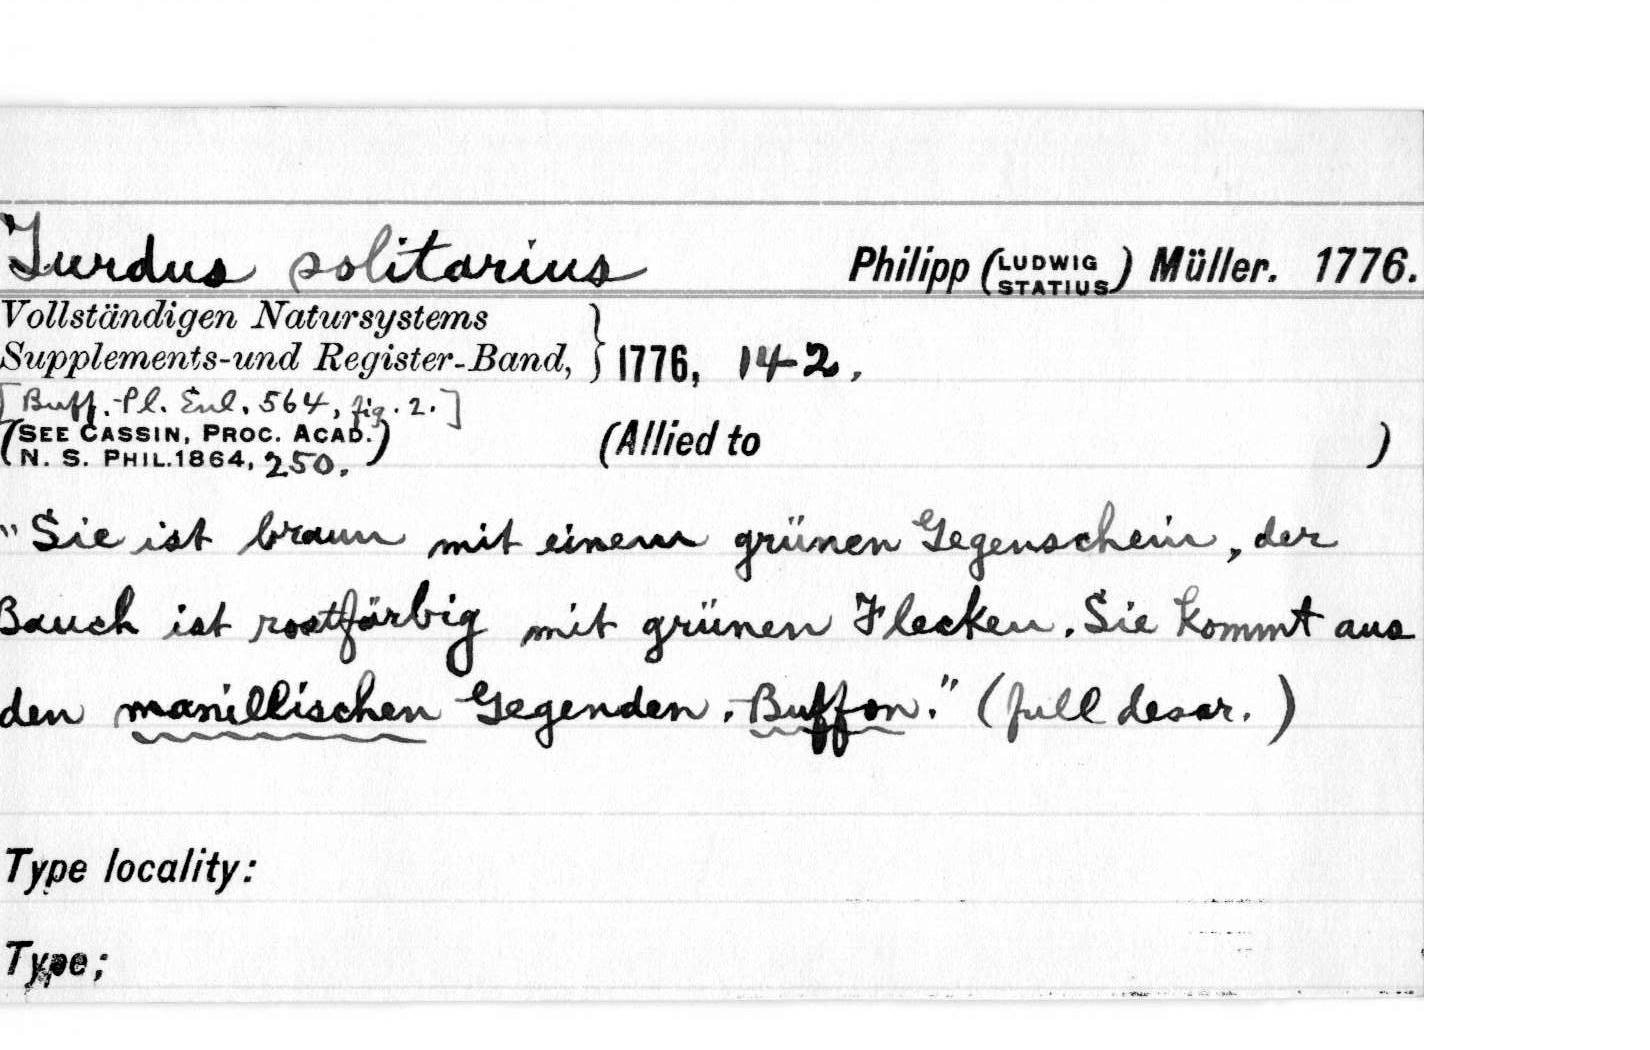 Turdus solitarius Philipp (LUDWIG STATIUS) Müller. 1776.
Vollständigen Natursystems
Supplements-und Register-Band, } 1776, 142.
[Buff. Pl. Enl. 564, fig. 2.]
(SEE CASSIN, PROC. ACAD. (Allied to )
N. S. PHIL. 1864, 250.)
"Sie ist braun mit einem grünen Gegenschein, der
Bauch ist rostfärbig mit grünen Flecken. Sie kommt aus
den manillischen Gegenden. Buffon." (full descr.)
Type locality:
Type;